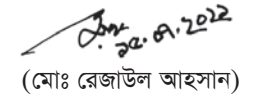 ২৫.০৭.২০২২
(মোঃ রেজাউল আহসান)